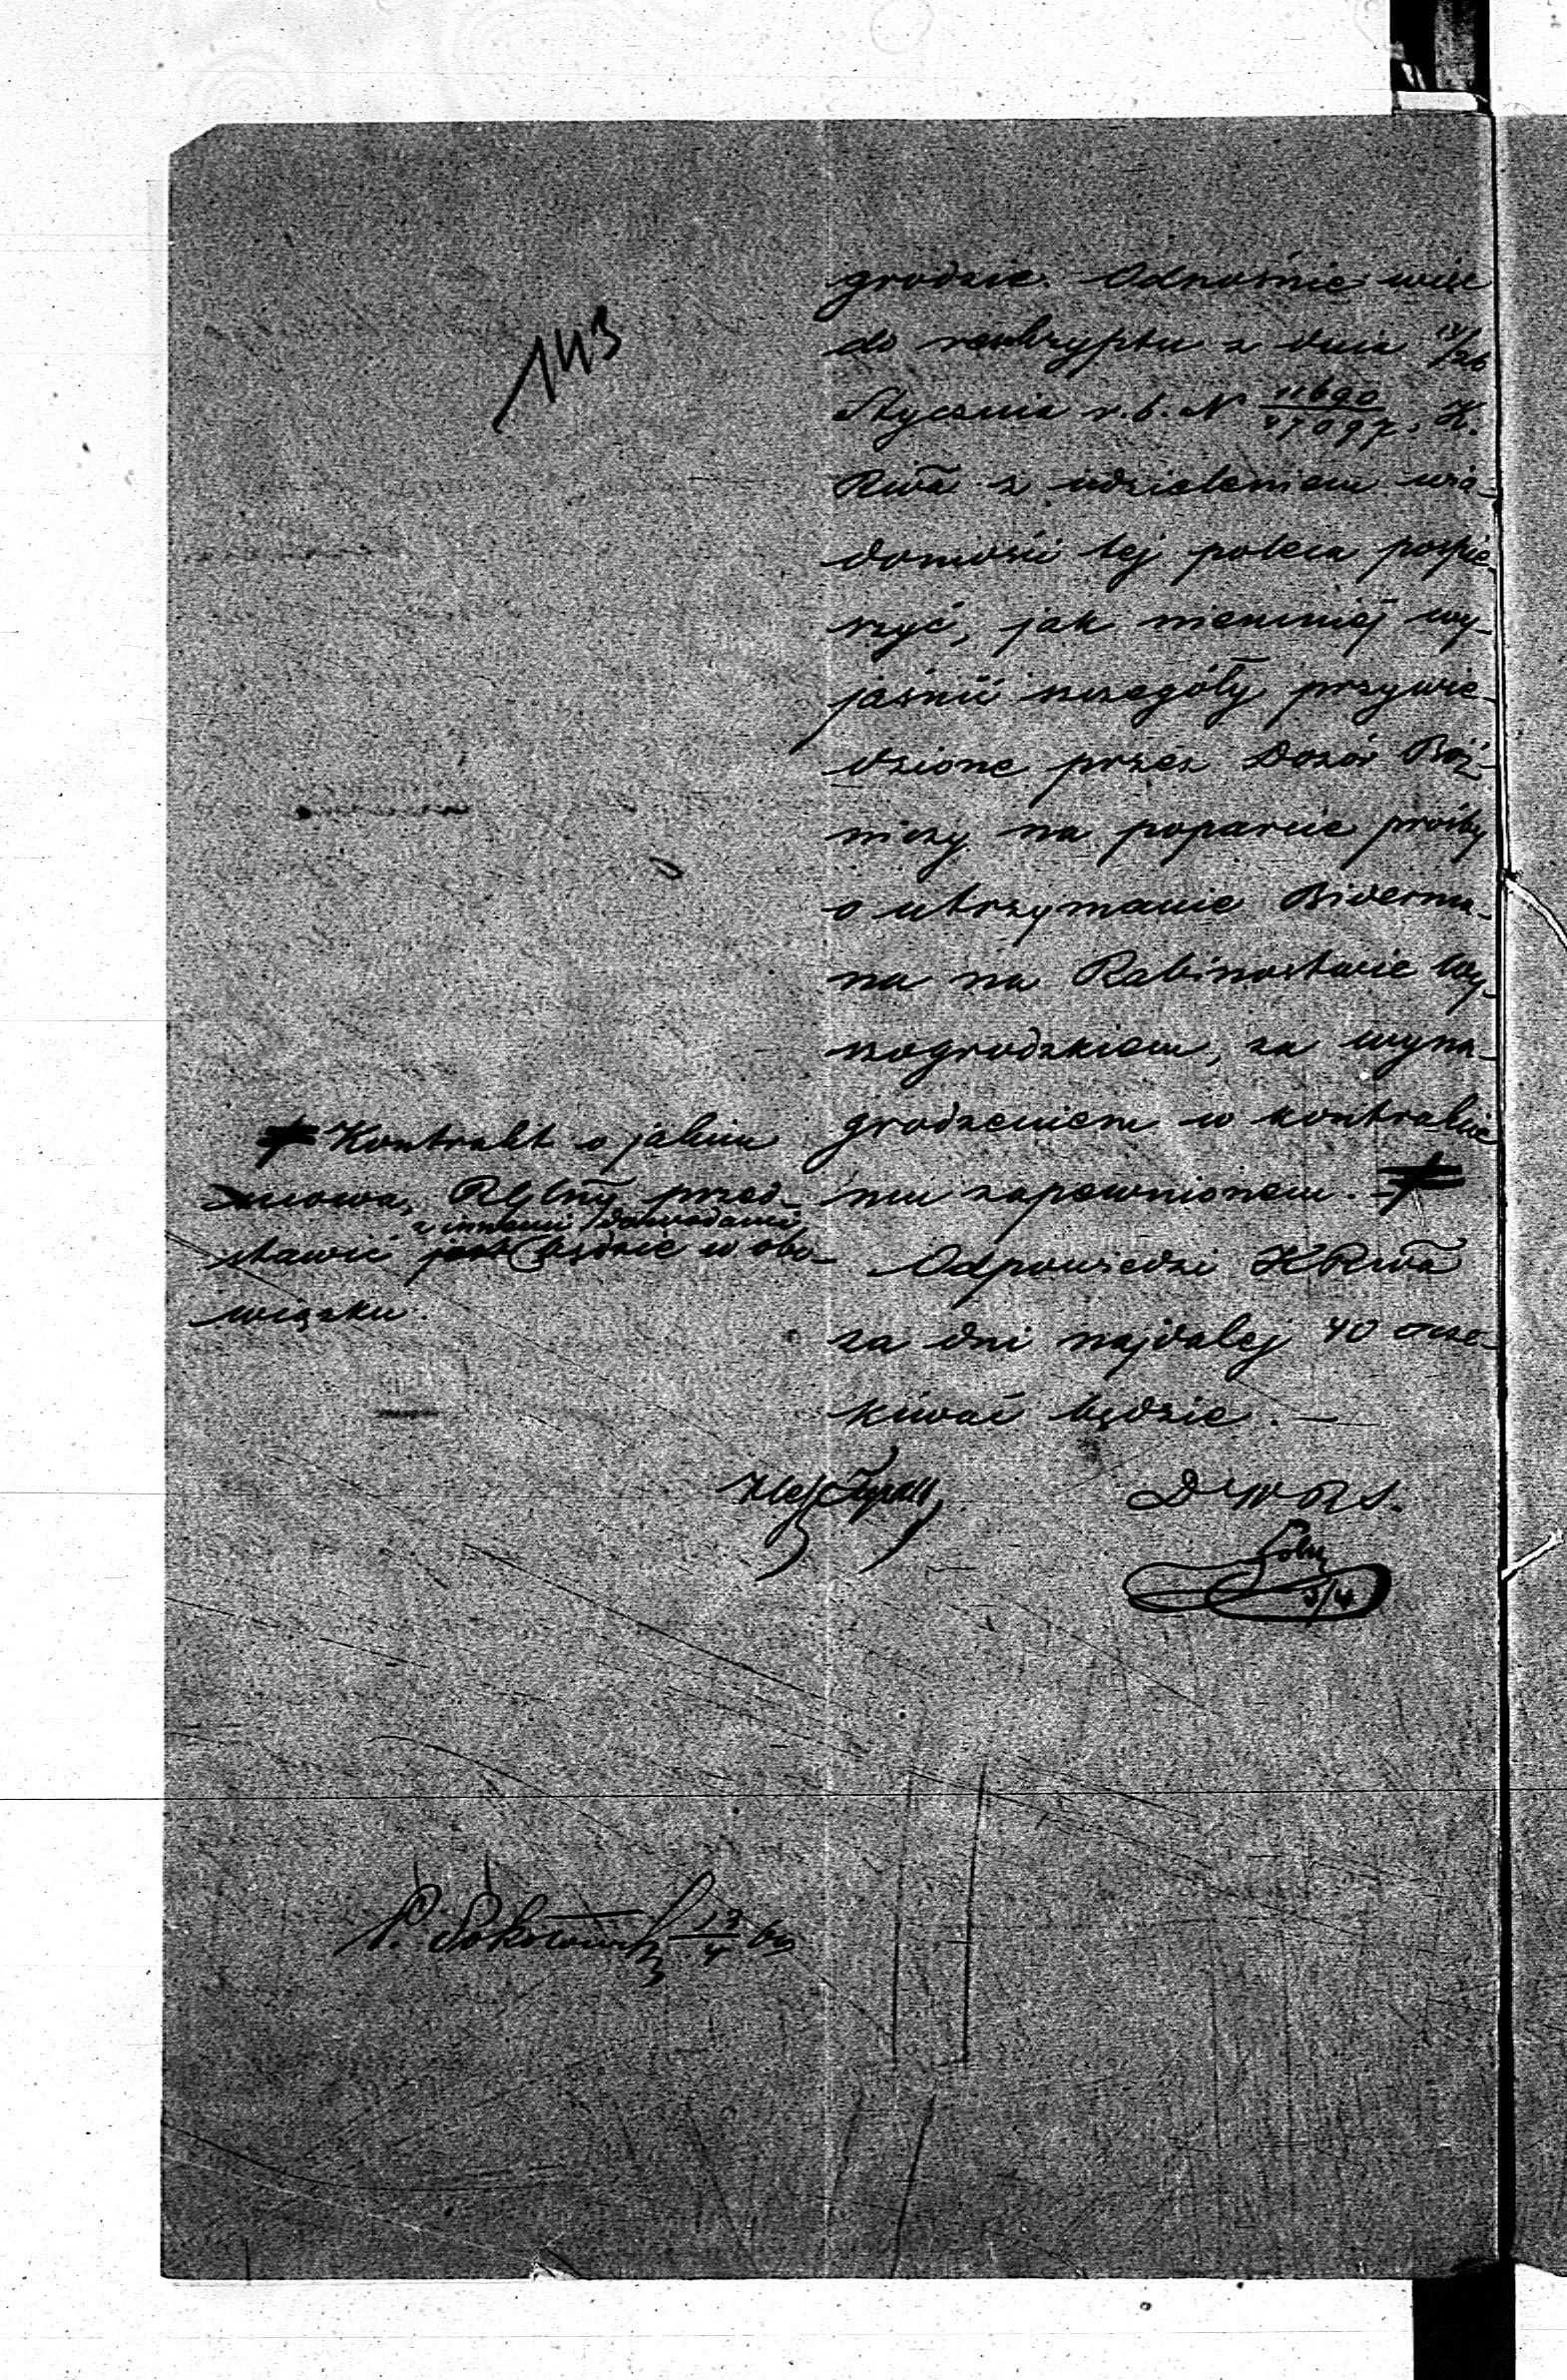 143
grodzie. Odnośnie więc
do reskryptu z dnia 14/26
Stycznia r. b. N 11690/17097, K.
Rwa z udzieleniem wia-
domości tej poleca pospie-
szyć, jak niemniej wy-
jaśnić szczegóły przywie-
dzione przez Dozór Boż-
niczy na poparcie prośby
o utrzymanie Biderma-
na na Rabinostwie Wy-
szogrodzkiem, za wyna-
grodzeniem w kontrakcie
mu zapewnionem. -
Odpowiedzi KRwa
za dni najdalej 40 ocze-
kiwać będzie. —
Kontrakt o jakim
mowa, przed-
z innemi dowodami
stawić jest będzie w obo-
wiązku.
D W R S.
3/4
P. Sokołowski 13/4